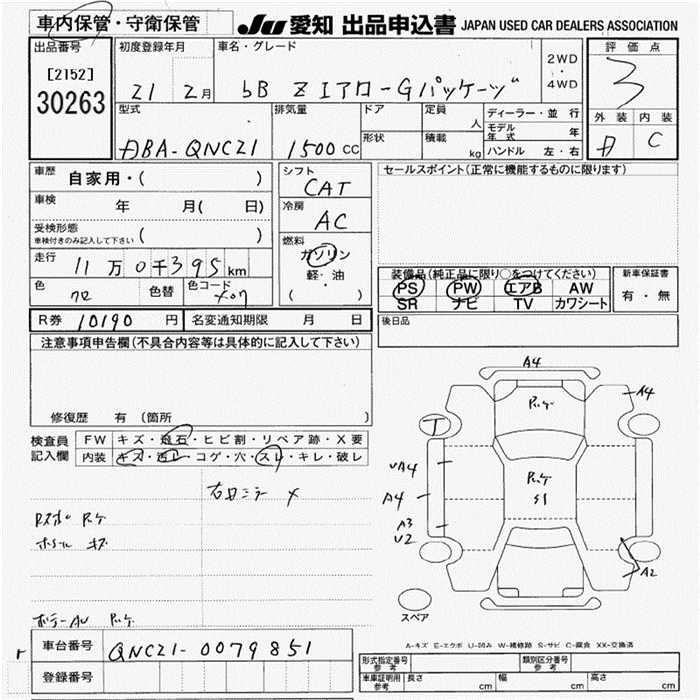 車内保管・守衛保管
JU 愛知 出品申込書 JAPAN USED CAR DEALERS ASSOCIATION
出品番号
[2152]
30263
初度登録年月
21 2月
車名・グレード
bB Z エアロ-Gパッケージ
2WD
・
4WD
評価点
3
外装 内装
C
型式
DBA-QNC21
排気量
1500 CC
ドア
形状
定員
人
積載
kg
ディーラー・並行
モデル年式 年
ハンドル 左・右
車歴
自家用・( )
車検
年 月( 日)
受検形態
車検付きのみ記入して下さい ( )
走行
11万0千395km
色
クロ
色替
色コード
X07
シフト
CAT
冷房
AC
燃料
ガソリン
軽・油
( )
セールスポイント(正常に機能するものに限ります)
装備品(純正品に限り○をつけてください)
PS PW エアB AW
SR ナビ TV カワシート
新車保証書
有・無
R券 10190 円
名変通知期限 月 日
後日品
注意事項申告欄(不具合内容等は具体的に記入して下さい)
修復歴 有 (箇所 )
検査員
記入欄
FW キズ・飛石・ヒビ割・リペア跡・X要
内装 キズ・汚レ・コゲ・穴・スレ・キレ・破レ
右口ミラー X
ホイール キズ
A4
A4
T
UA4
A4
A3
U2
S1
A2
スペア
A-キズ E-エクボ U-凹み W-補修跡 S-サビ C-腐食 XX-交換済
車台番号
QNC21-0079851
登録番号
形式指定番号
参考
類別区分番号
参考
車庫証明用
参考
長さ cm
幅 cm
高さ cm